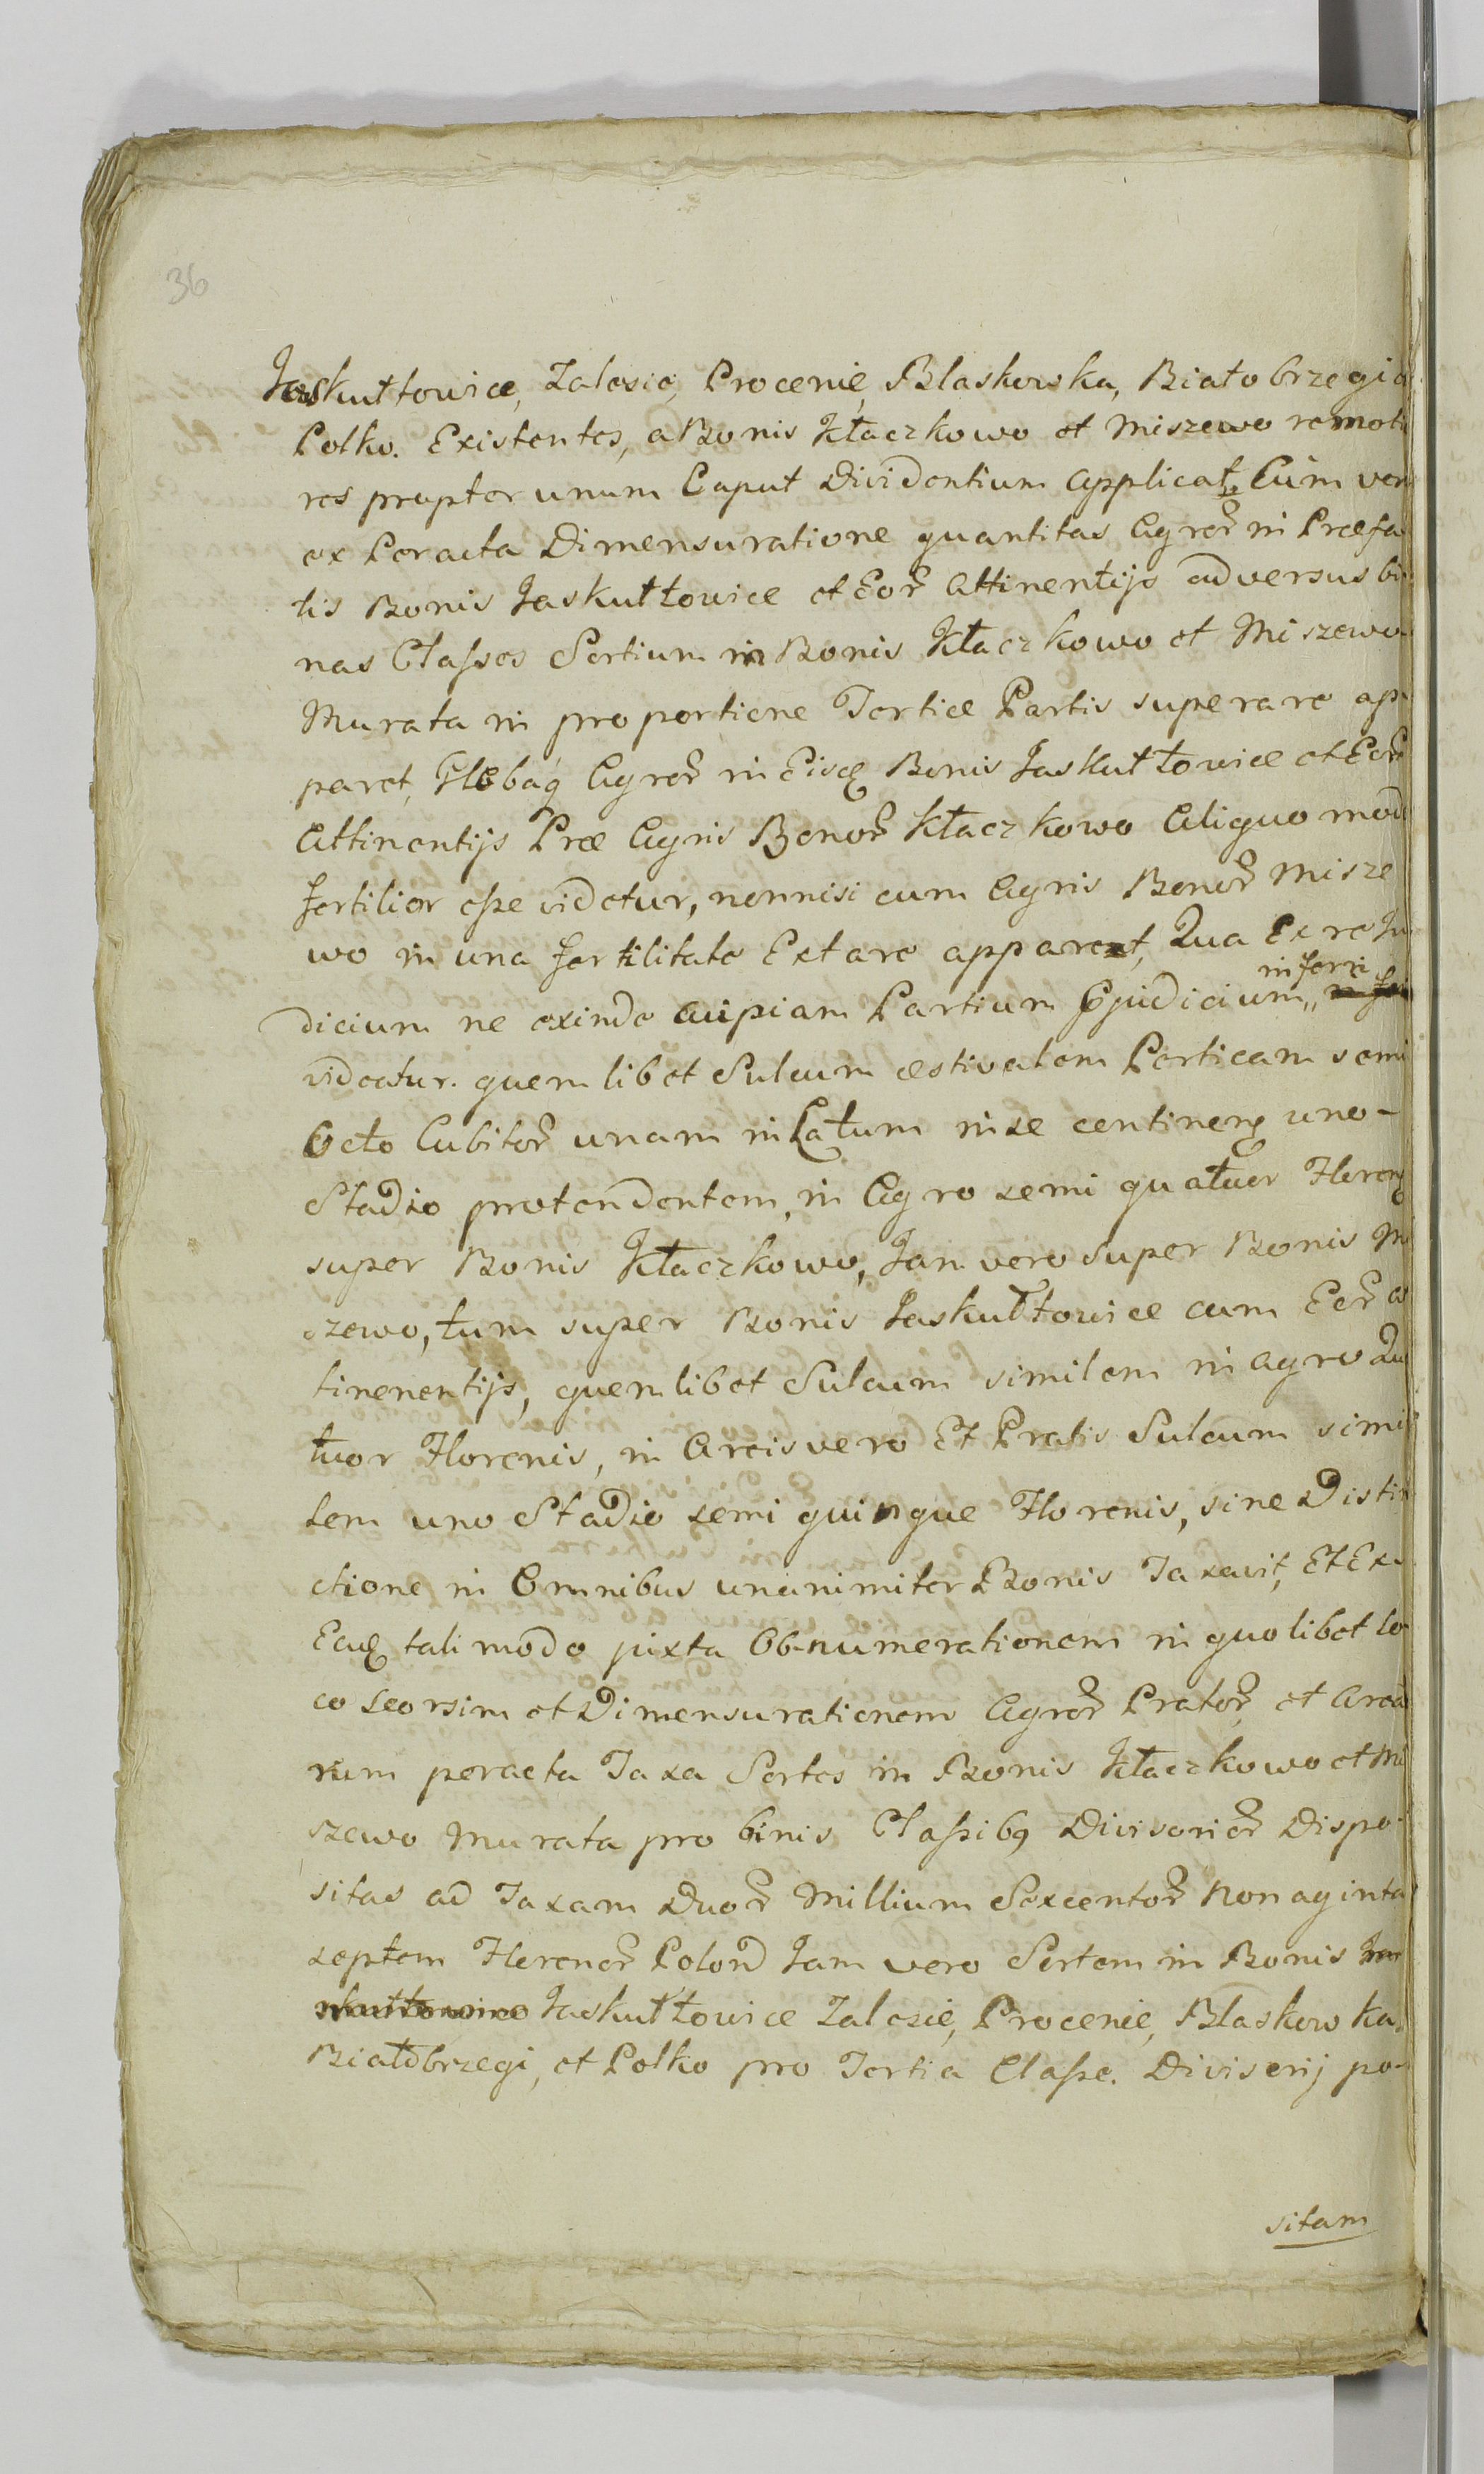 36
Jaskułłowice, Zalesie, Procenie, Blaskowska, Białobrzegi a
Polko. Existentes, a Bonis Kłaczkowo et Miszewo remoti
res propter unum Caput Dividentium applicat. Cum vero
ex Peracta Dimensuratione quantitas Agror̃ in Præfa
tis Bonis Jaskułłowice et Eor̃ Attinentijs adversus bi
nas Classes Sortium in Bonis Kłaczkowo et Miszewo
Murata in proportione Tertiæ Partis superare ap
paret, Glebaq Agror̃ in Eisq Bonis Jaskułłowice et Eor̃
Attinentijs Præ Agris Bonor̃ Kłaczkowo Aliquo modo
fertilior esse videtur, nonnisi cum Agris Bonor̃ Misze
wo in una fertilitate Extare apparet, Qua Ex re Ju
inferri
dicium ne exinde cuipiam Partium Pjudicium
videatur. quemlibet Sulcum æstivalem Perticam semi
Octo Cubitor̃ unam in Latum in se continenq uno-
Stadio protendentem, in Agro semi quatuor Floren
super Bonis Kłaczkowo, Jam vero super Bonis Mi
szewo, tum super Bonis Jaskułłowice cum Eor̃ at
tinenentijs, quemlibet Sulcum similem in agro Qua
tuor Florenis, in Areis vero Et Pratis Sulcum simi
lem uno Stadio semi quinque Florenis, sine Distin
ctione in Omnibus unanimiter Bonis Taxavit, Et Ex
Eaq tali modo juxta Obnumerationem in quolibet lo
co seorsim et Dimensurationem Agror̃ Prator̃, et Area
rum peracta Taxa Sortes in Bonis Kłaczkowo et Mi
szewo Murata pro binis Classibq Divisorior̃ Dispo-
sitas ad Taxam Duor̃ Millium Sexcentor̃ Nonaginta
septem Florenor̃ Polon Jam vero Sortem in Bonis
Jaskułłowice Zalesie, Procenie, Blaskowka,
Białobrzegi, et Polko pro Tertia Classe. Divisorij po-
sitam